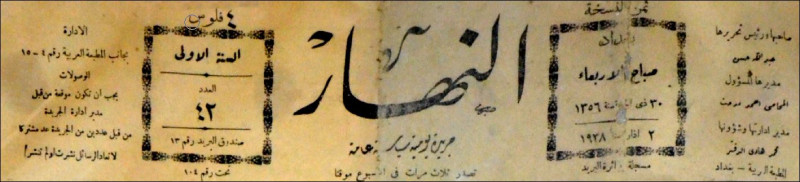 صاحبها ورئيس تحريرها
عبد الله حسن
مديرها المسؤول
المحامي احمد مدحت
مدير ادارتها وشؤونها
محمد هادي الدفتر
المطبعة العربية - بغداد
ثمن النسخة
٤ فلوس
بغداد
صباح الاربعاء
٣٠ ذي الحجة سنة ١٣٥٦
٢ اذار سنة ١٩٣٨
مسجلة بدائرة البريد
النهار
جريدة يومية سياسية عامة
تصدر ثلاث مرات في الاسبوع موقتا
السنة الاولى
العدد
٤٢
صندوق البريد رقم ١٣
تحت رقم ١٠٤
الادارة
بجانب المطبعة العربية رقم ٤-١٥
الوصولات
يجب ان تكون موقعة من قبل
مدير ادارة الجريدة
من قبل عددين من الجريدة عد مشتركا
لا تعاد الرسائل نشرت او لم تنشر